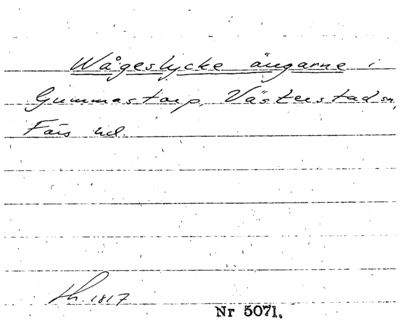 Wågeslycke ängarne i
Gummastorp, Västerstad sn,
Färs hd.
Lh. 1817
Nr 5071.